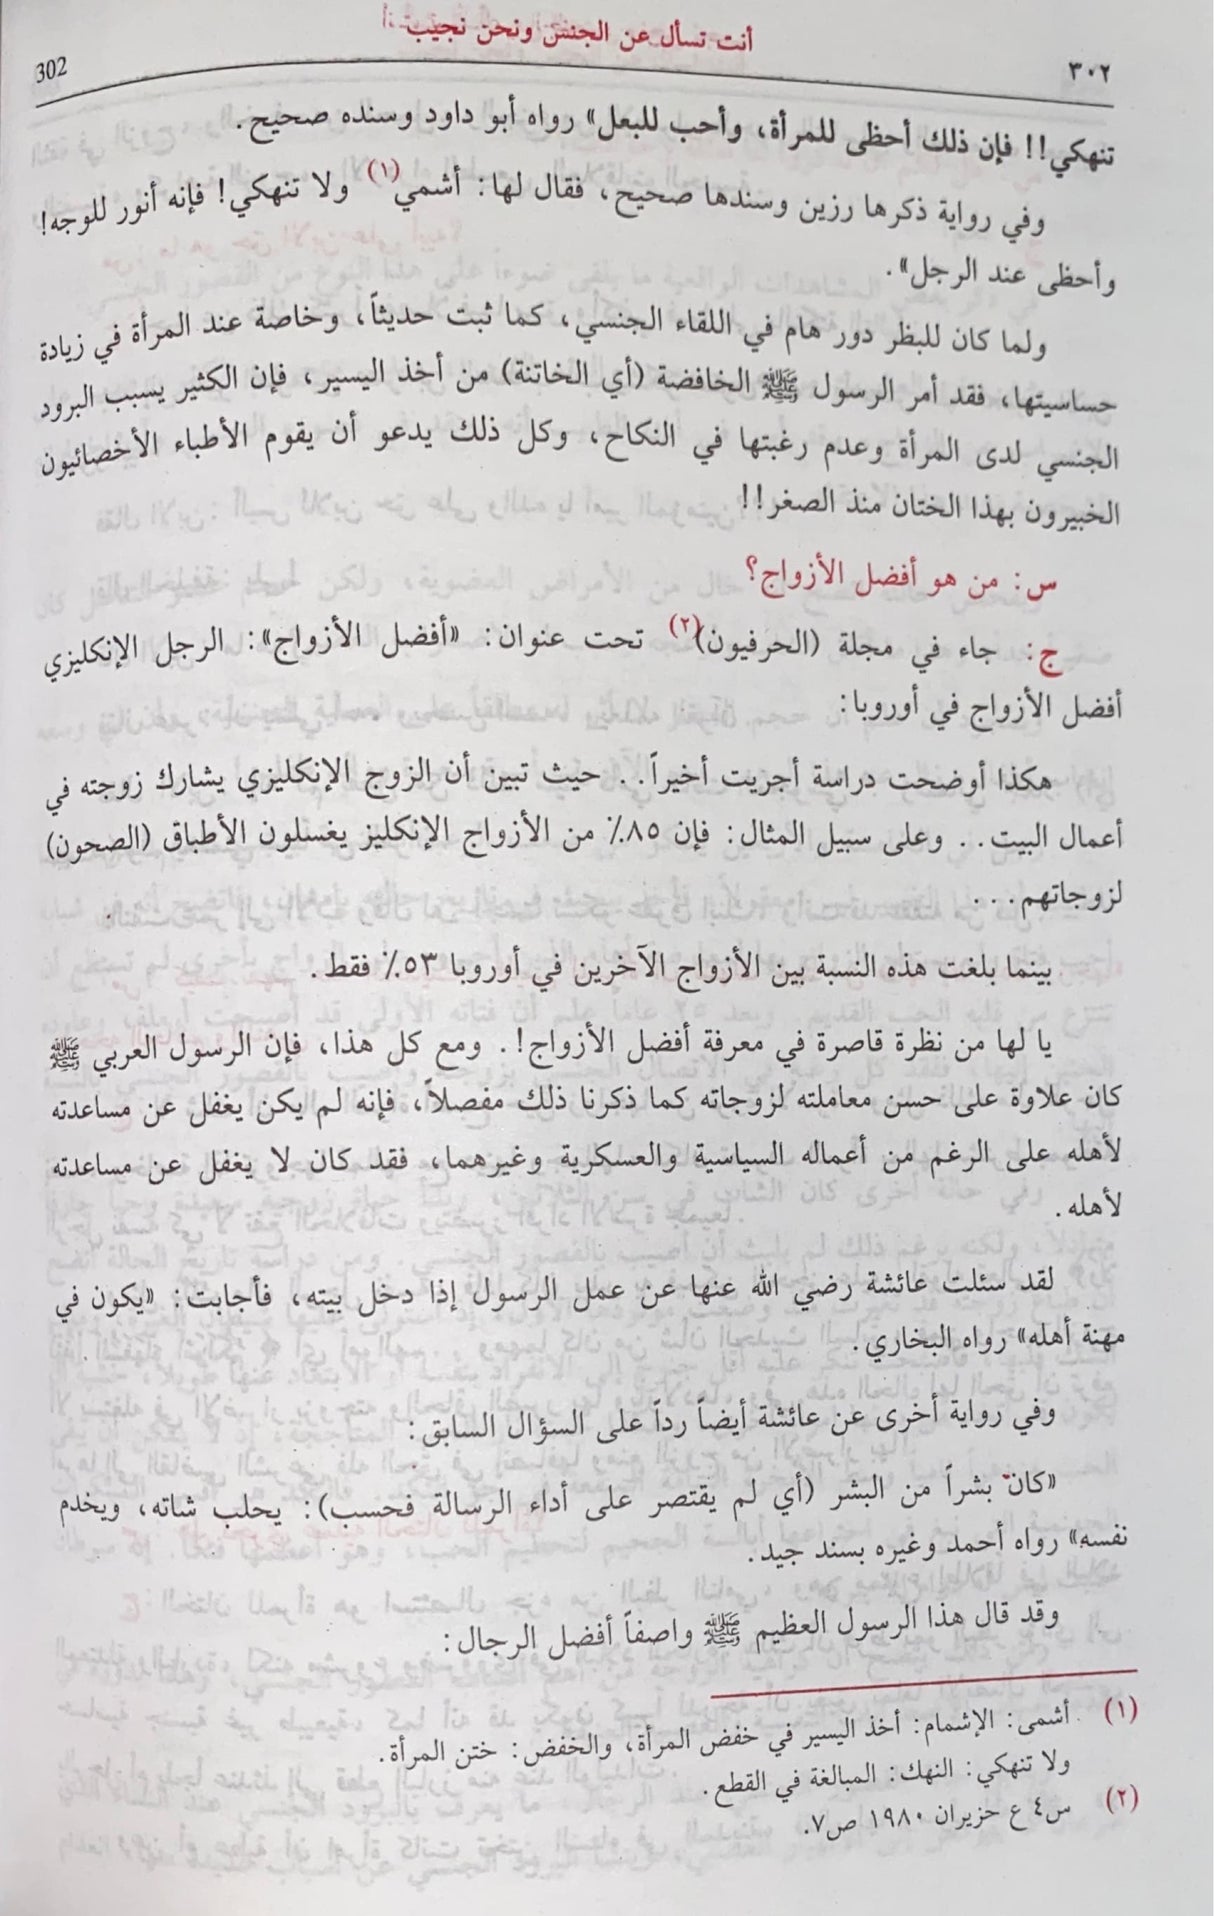 أنت تسأل عن الجنس ونحن نجيب
٣٠٢
302
تنهكي!! فإن ذلك أحظى للمرأة، وأحب للبعل» رواه أبو داود وسنده صحيح.
وفي رواية ذكرها رزين وسندها صحيح، فقال لها: أشمي(١) ولا تنهكي! فإنه أنور للوجه!
وأحظى عند الرجل».
ولما كان للبظر دور هام في اللقاء الجنسي، كما ثبت حديثاً، وخاصة عند المرأة في زيادة
حساسيتها، فقد أمر الرسول ﷺ الخافضة (أي الخاتنة) من أخذ اليسير، فإن الكثير يسبب البرود
الجنسي لدى المرأة وعدم رغبتها في النكاح، وكل ذلك يدعو أن يقوم الأطباء الأخصائيون
الخبيرون بهذا الختان منذ الصغر!!
س: من هو أفضل الأزواج؟
ج: جاء في مجلة (الحرفيون)(٢) تحت عنوان: «أفضل الأزواج»: الرجل الإنكليزي
أفضل الأزواج في أوروبا:
هكذا أوضحت دراسة أجريت أخيراً.. حيث تبين أن الزوج الإنكليزي يشارك زوجته في
أعمال البيت.. وعلى سبيل المثال: فإن ٨٥٪ من الأزواج الإنكليز يغسلون الأطباق (الصحون)
لزوجاتهم...
بينما بلغت هذه النسبة بين الأزواج الآخرين في أوروبا ٥٣٪ فقط.
يا لها من نظرة قاصرة في معرفة أفضل الأزواج!. ومع كل هذا، فإن الرسول العربي ﷺ
كان علاوة على حسن معاملته لزوجاته كما ذكرنا ذلك مفصلاً، فإنه لم يكن يغفل عن مساعدته
لأهله على الرغم من أعماله السياسية والعسكرية وغيرهما، فقد كان لا يغفل عن مساعدته
لأهله.
لقد سئلت عائشة رضي الله عنها عن عمل الرسول إذا دخل بيته، فأجابت: «يكون في
مهنة أهله» رواه البخاري.
وفي رواية أخرى عن عائشة أيضاً رداً على السؤال السابق:
«كان بشراً من البشر (أي لم يقتصر على أداء الرسالة فحسب): يحلب شاته، ويخدم
نفسه» رواه أحمد وغيره بسند جيد.
وقد قال هذا الرسول العظيم ﷺ واصفاً أفضل الرجال:
(١) أشمى: الإشمام: أخذ اليسير في خفض المرأة، والخفض: ختن المرأة.
ولا تنهكي: النهك: المبالغة في القطع.
(٢) س٤ ع حزيران ١٩٨٠ ص٧.